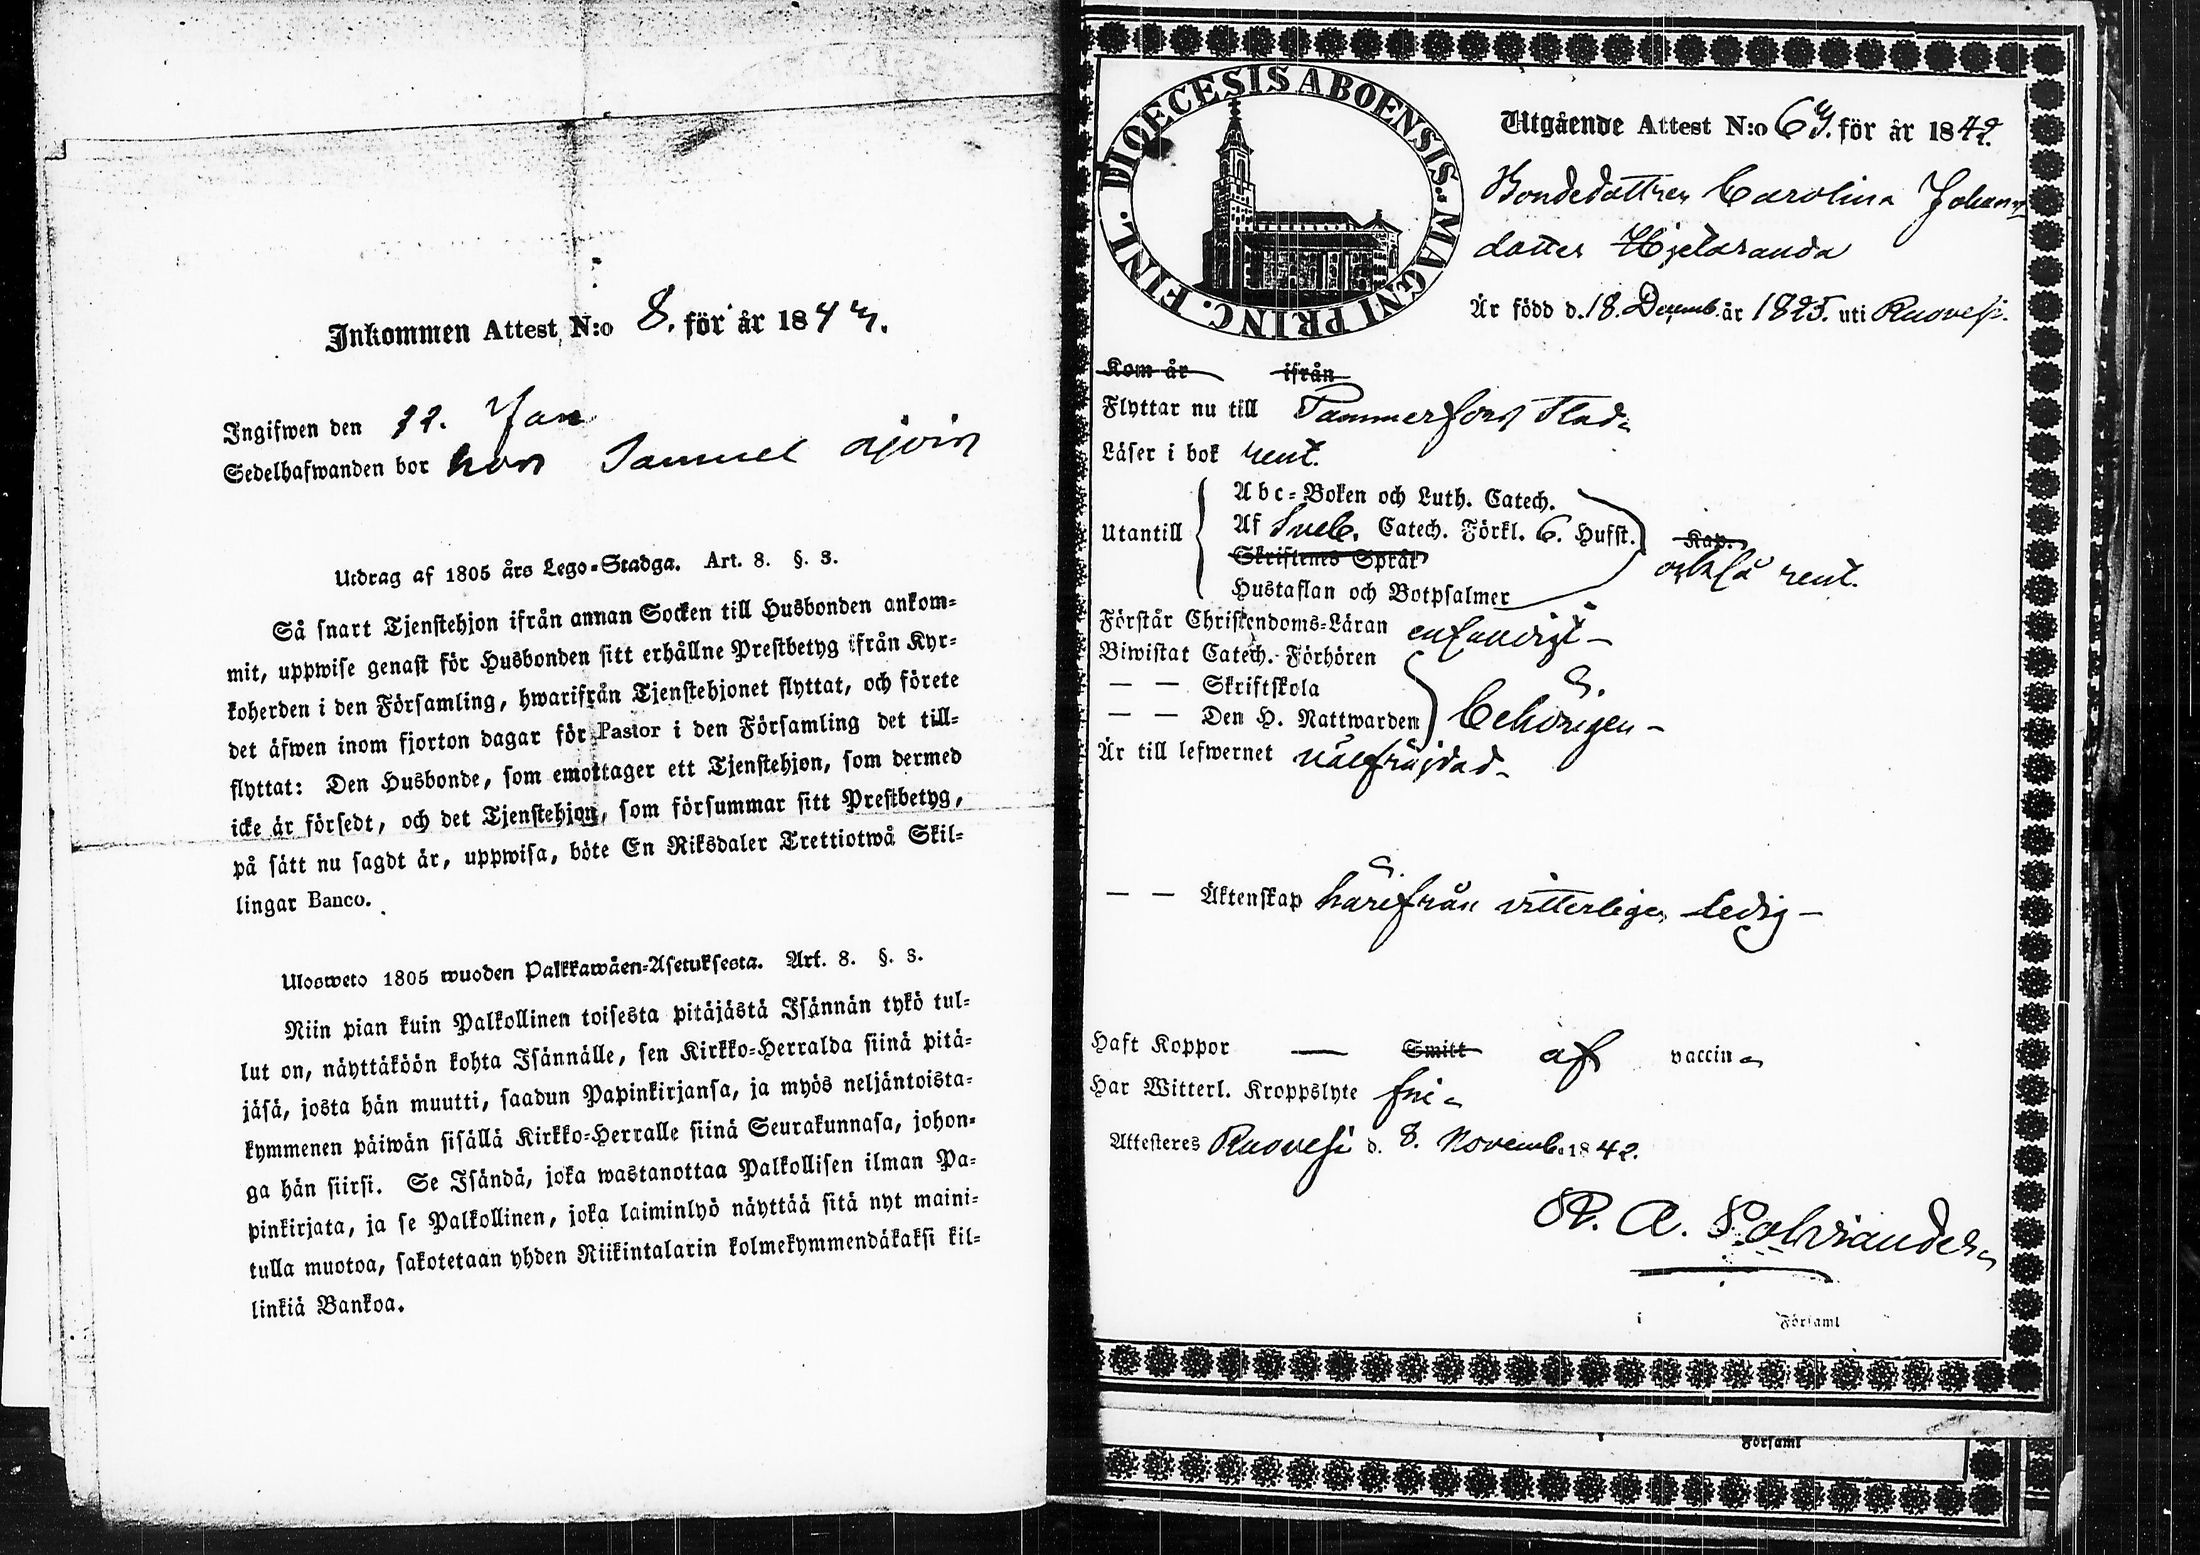 Inkommen Attest N:o 8. för år 1843.
Ingifwen den 12. Jan
Sedelhafwanden bor hos Samuel
Utdrag af 1805 års Lego-Stadga. Art. 8. §. 3.
Så snart Tjenstehjon ifrån annan Socken till Husbonden ankom-
mit, uppwise genast för Husbonden sitt erhållne Prestbetyg ifrån Kyr-
koherden i den Församling, hwarifrån Tjenstehjonet flyttat, och förete
det äfwen inom fjorton dagar för Pastor i den Församling det till-
flyttat: Den Husbonde, som emottager ett Tjenstehjon, som dermed
icke är försedt, och det Tjenstehjon, som försummar sitt Prestbetyg,
på sätt nu sagdt är, uppwisa, böte En Riksdaler Trettiotwå Skil-
lingar Banco.
Ulosweto 1805 wuoden Palkkawäen-Asetuksesta. Art. 8. §. 3.
Niin pian kuin Palkollinen toisesta pitäjästä Isännän tykö tul-
lut on, näyttäköön kohta Isännälle, sen Kirkko-Herralda siinä pitä-
jäsä, josta hän muutti, saadun Papinkirjansa, ja myös neljäntoista-
kymmenen päiwän sisällä Kirkko-Herralle siinä Seurakunnasa, johon-
ga hän siirsi. Se Isändä, joka wastanottaa Palkollisen ilman Pa-
pinkirjata, ja se Palkollinen, joka laiminlyö näyttää sitä nyt maini-
tulla muotoa, sakotetaan yhden Riikintalarin kolmekymmendäkaksi kil-
linkiä Bankoa.
DIOECESIS ABOENSIS. MAGNI PRINC. FINL.
Utgående Attest N:o för år 1842.
Bondedottren Carolina Johans
dotter
Är född d. 18. Decemb. år 1825. uti Ruovesi.
Kom år ifrån
Flyttar nu till Tammerfors Stad
Läser i bok rent.
Utantill
Abc-Boken och Luth. Catech.
Af Sveb. Catech. Förkl. 6. Hufst. Kap.
Skriftenes Språk
också rent.
Hustaflan och Botpsalmer
Förstår Christendoms-Läran enfaldigt –
Biwistat Catech. Förhören
— — Skriftskola
— — Den H. Nattwarden behörigen –
Är till lefwernet wälfräjdad
— — Äktenskap härifrån vitterligen ledig –
Haft Koppor — Smitt af vaccin
Har Witterl. Kroppslyte fri
Attesteres Ruovesi d. 8. Novemb. 1842.
i Församl
Församl